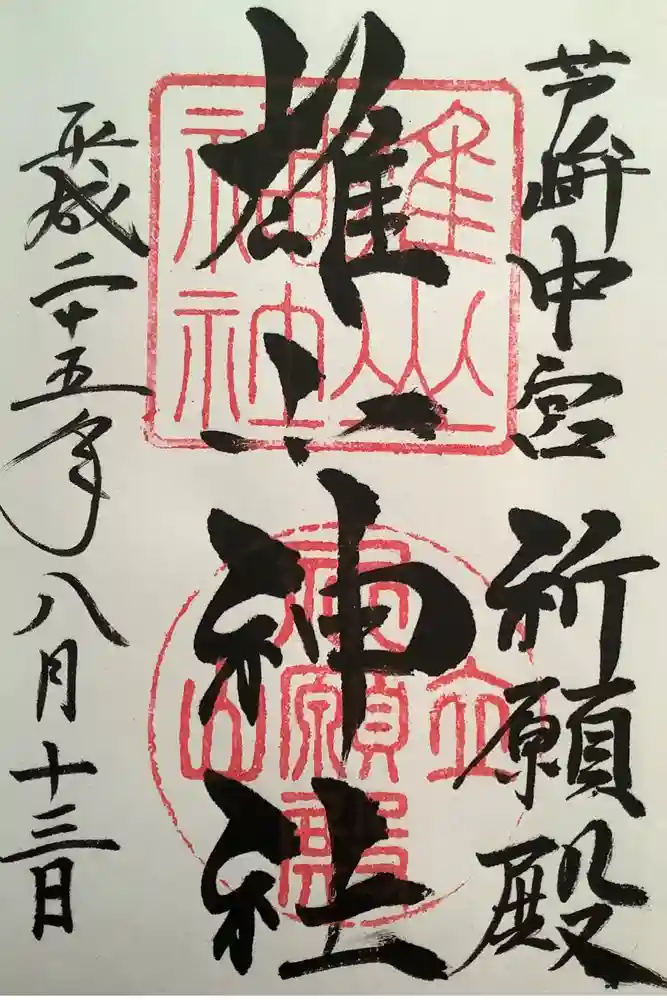 芦峅中宮 祈願殿
雄山神社
平成二十五年八月十三日
雄山
神社
立山
祈願殿